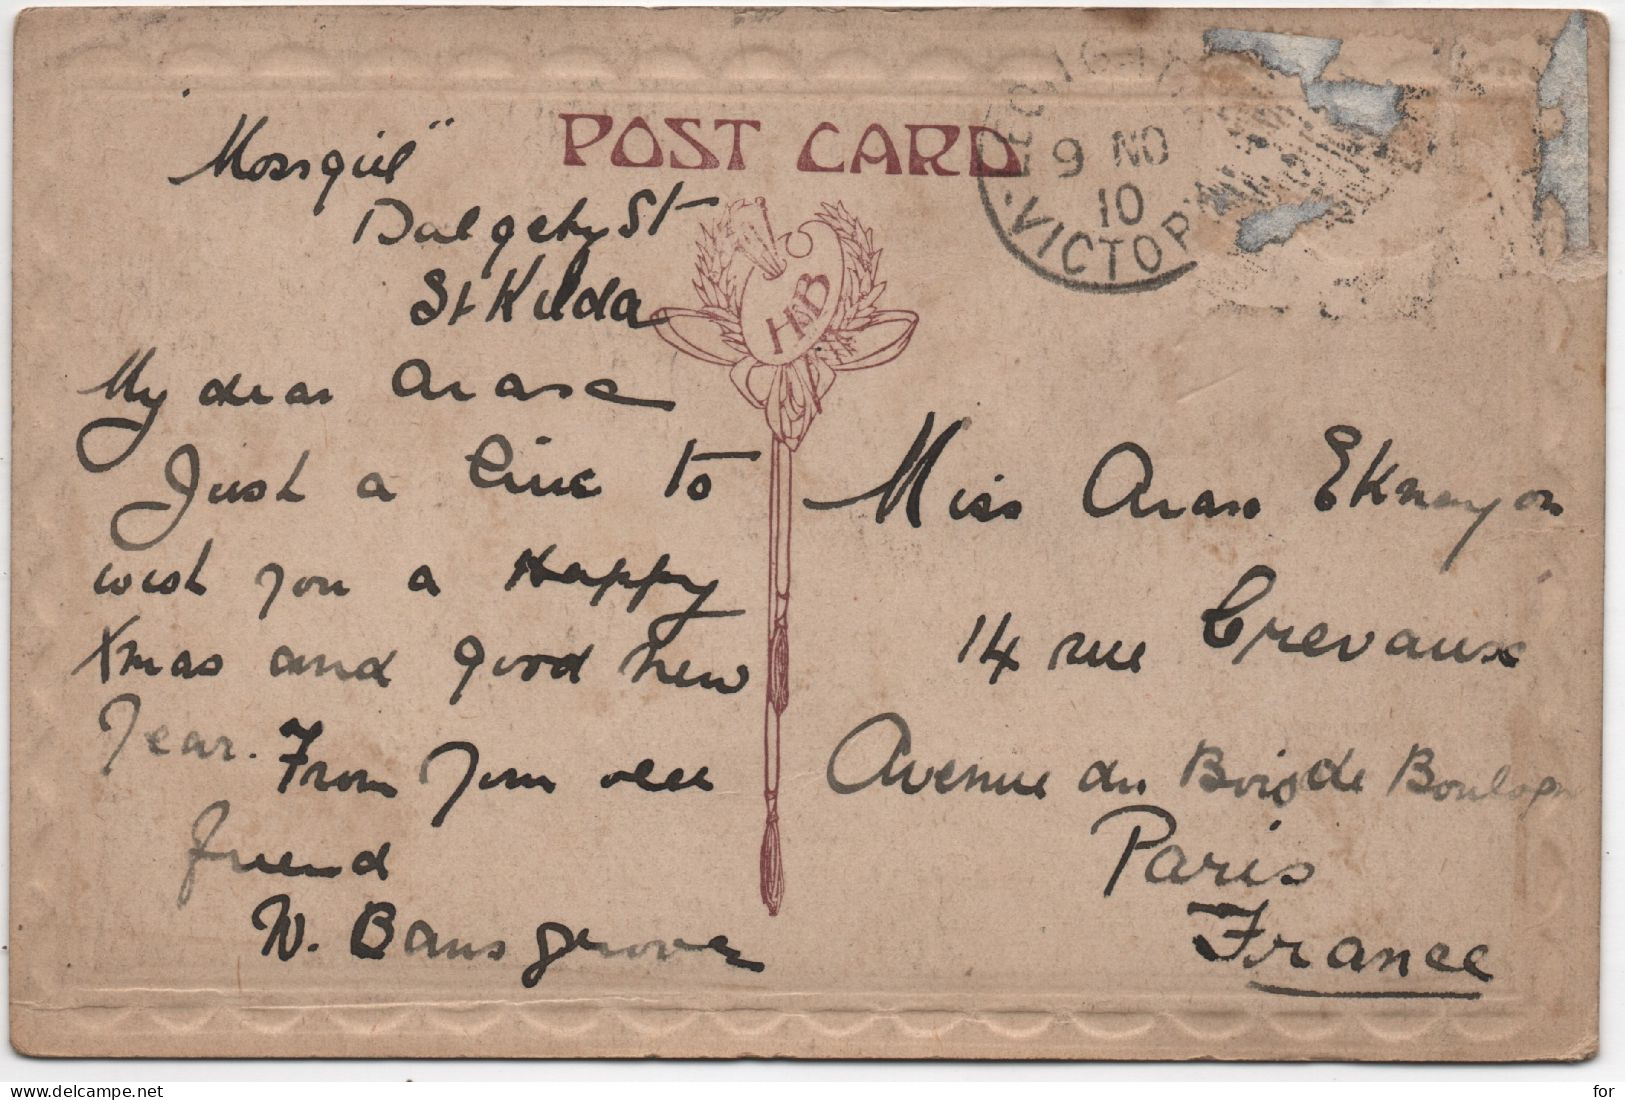 POST CARD
9 NO
10
VICTOR
H&B
"Mossgiel"
Dalgety St
St Kilda
My dear Araxe
Just a line to
wish you a Happy
Xmas and good new
Year. From your old
friend
W.
Miss Araxe Eknayan
14 rue Crevaux
Avenue du Bois de Boulogn
Paris
France
for
www.delcampe.net